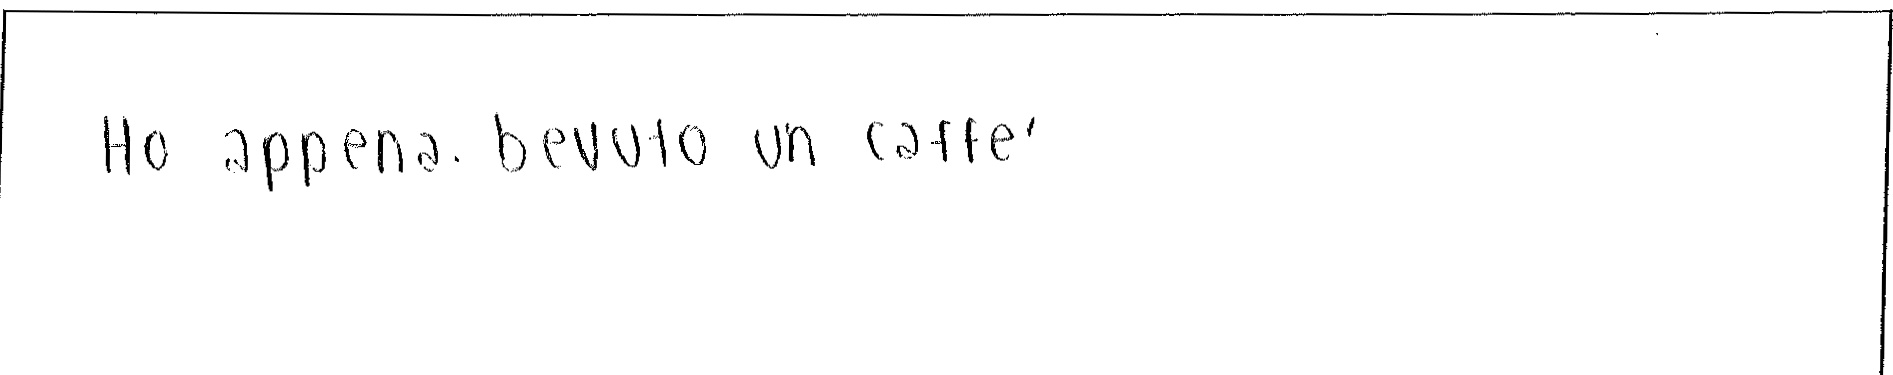 Ho appena. bevuto un caffe'